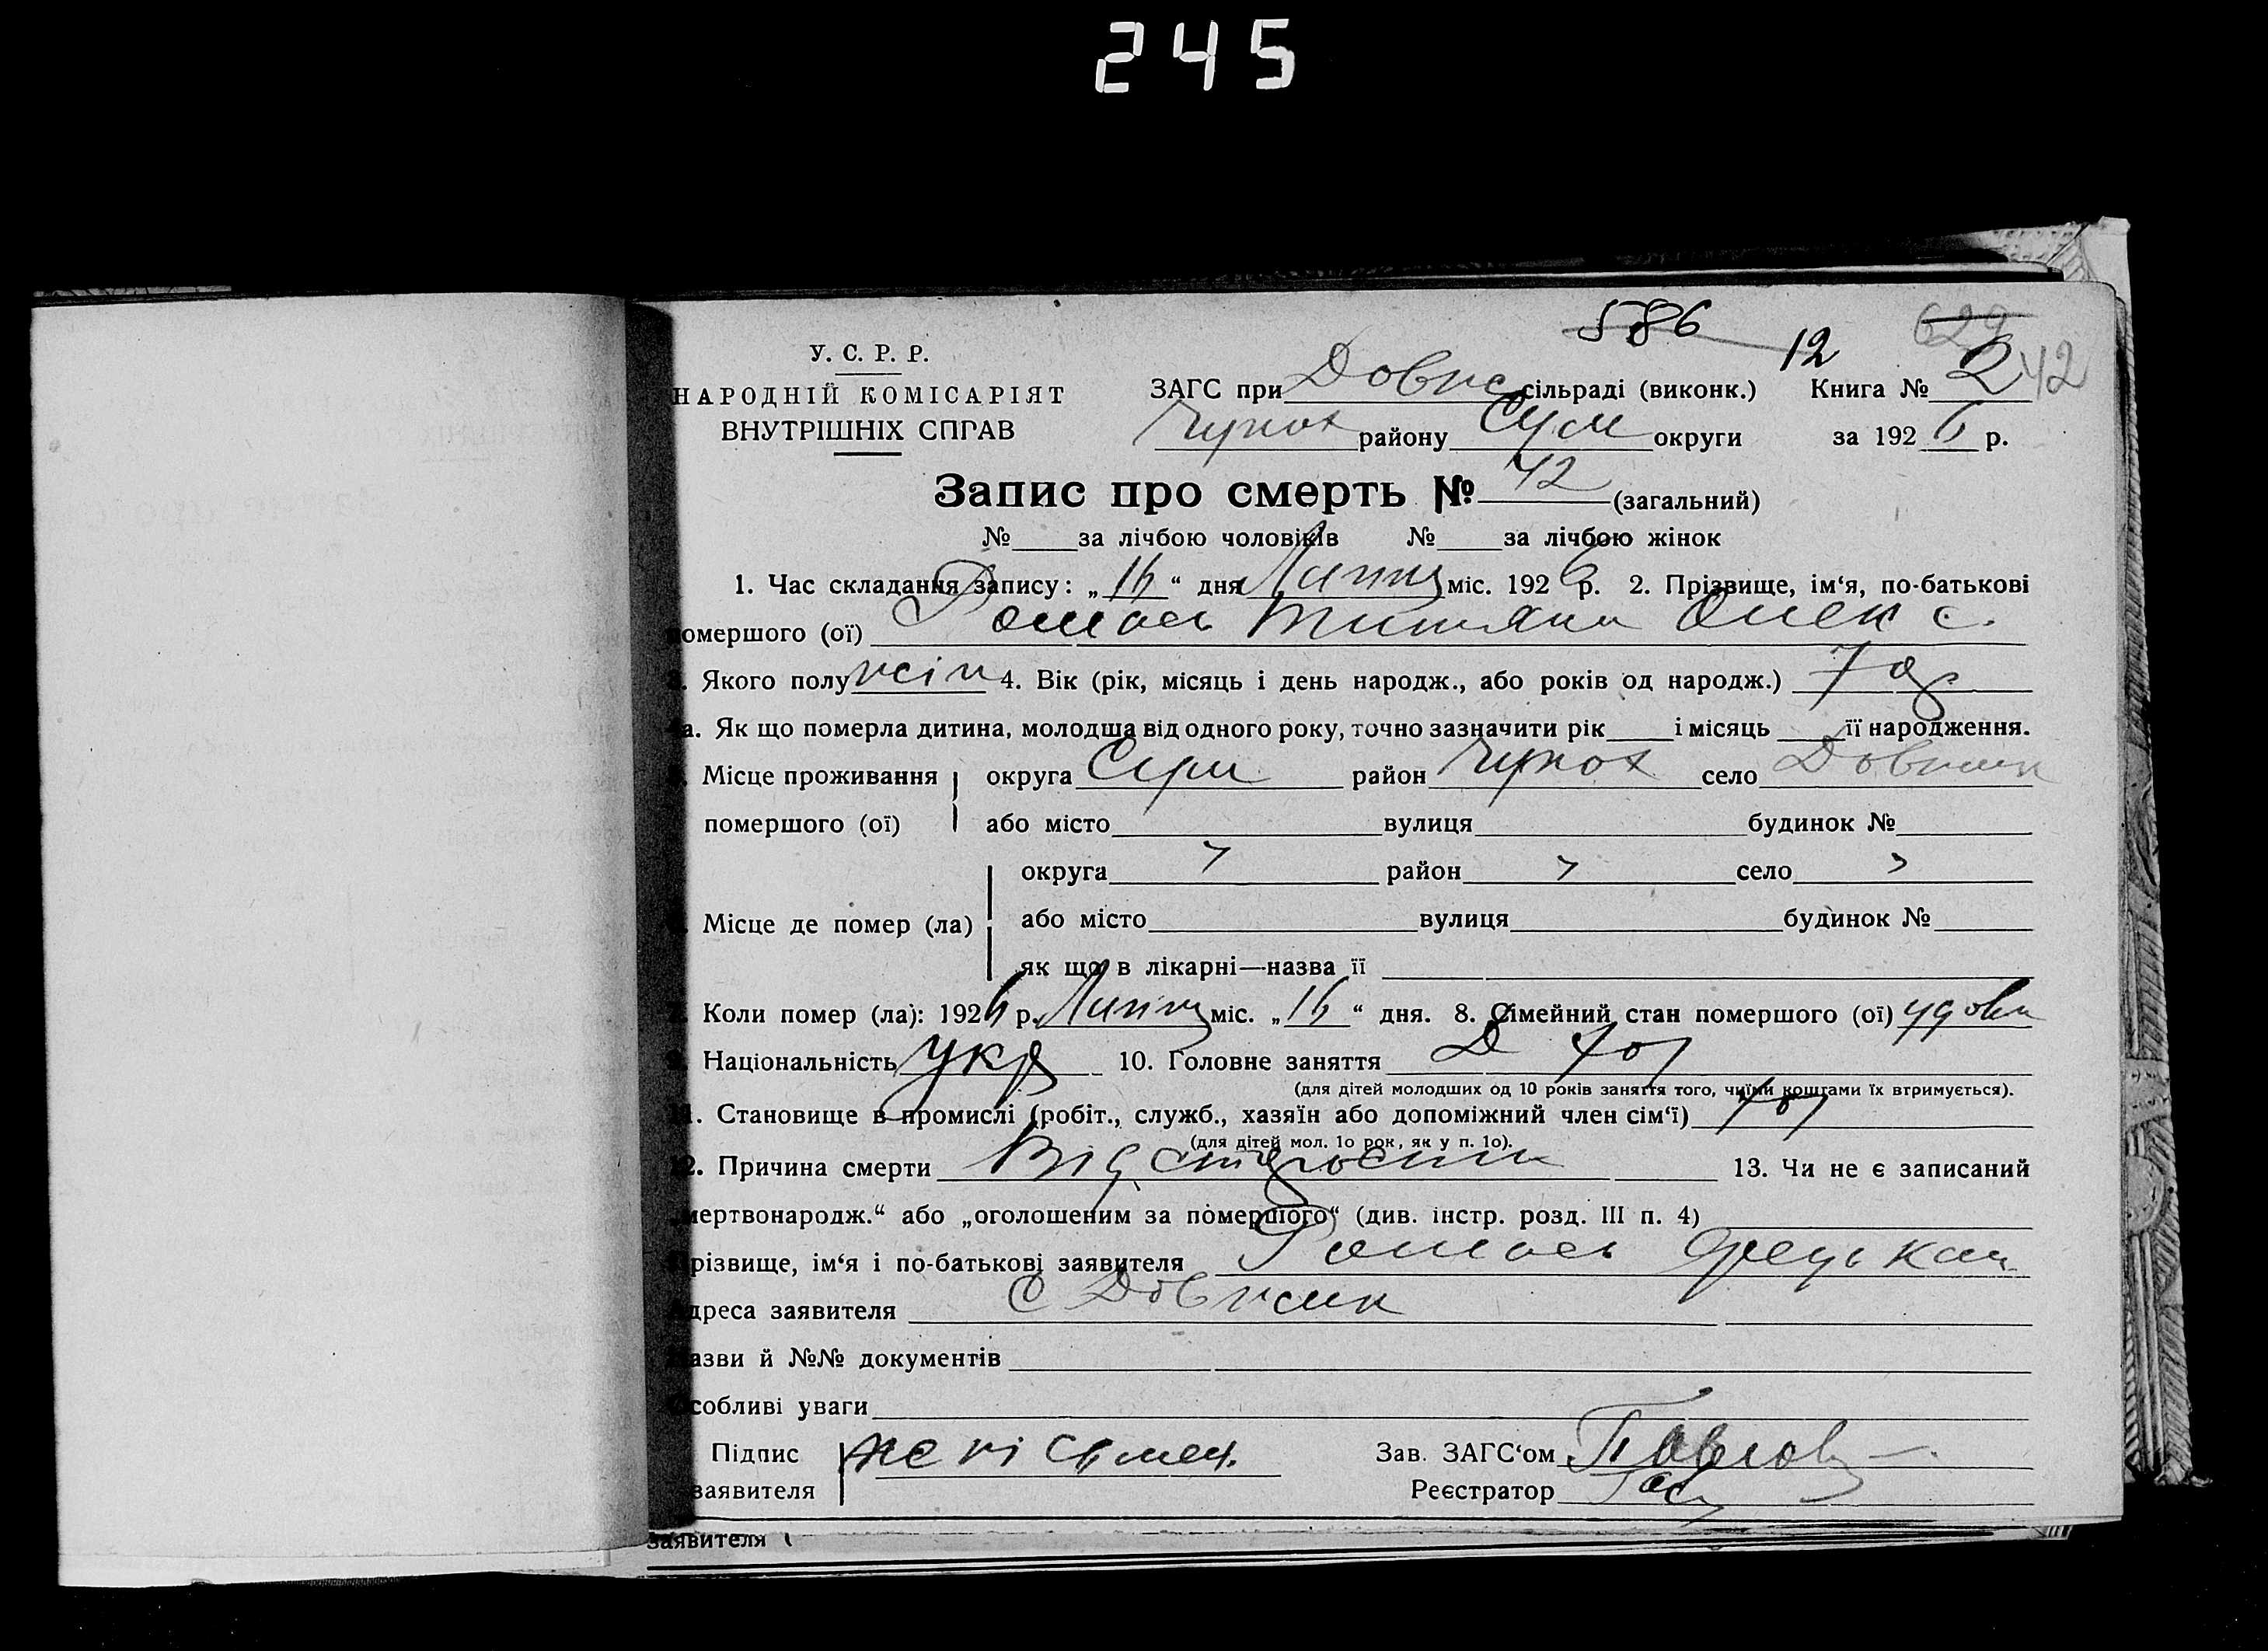 245
586
12
629
У. С. Р. Р.
НАРОДНІЙ КОМІСАРІЯТ
ВНУТРІШНІХ СПРАВ
ЗАГС при Довжс сільраді (виконк.) Книга № 2 42
району Сум округи за 1926 р.
Запис про смерть № 42 (загальний)
№ за лічбою чоловіків № за лічбою жінок
1. Час складання запису: „16“ дня Липня міс. 1926 р. 2. Прізвище, ім‘я, по-батькові
омершого (ої) Ромась Олекс.
Якого полу жін 4. Вік (рік, місяць і день народж., або років од народж.)
а. Як що померла дитина, молодша від одного року, точно зазначити рік і місяць її народження.
Місце проживання округа Сум район село Довжик
помершого (ої) або місто вулиця будинок №
округа район село
Місце де помер (ла) або місто вулиця будинок №
як що в лікарні—назва її
Коли помер (ла): 1926 р. Липня міс. „16“ дня. 8. Сімейний стан помершого (ої) удова
Національність укр 10. Головне заняття
(для дітей молодших од 10 років заняття того, чиїми коштами їх втримується).
1. Становище в промислі (робіт., служб., хазяїн або допоміжний член сім‘ї)
(для дітей мол. 1о рок, як у п. 1о).
2. Причина смерти Від старости 13. Чи не є записаний
мертвонародж.“ або „оголошеним за помершого“ (див. інстр. розд. III п. 4)
різвище, ім‘я і по-батькові заявителя Ромась
дреса заявителя С Довжик
азви й №№ документів
собливі уваги
Підпис неписьмен. Зав. ЗАГС‘ом
заявителя Реєстратор
заявителя